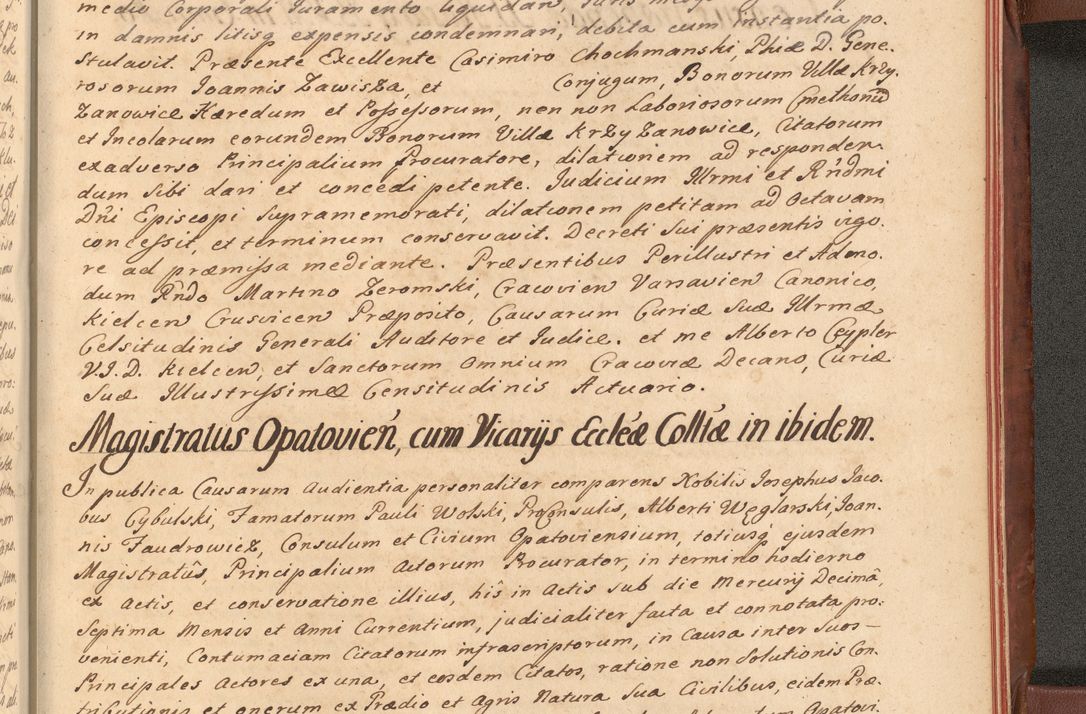 medio Corporali Juramento liquidan,
in damnis litisq expensis condemnari, debita cum instantia po.
stulavit. Præsente Excellente Casimiro Chochmanski, Phiæ D. Gene.
rosorum Joannis Zawisza, et Conjugum, Bonorum Villæ Krzy.
zanowice Hæredum et Possessorum, nen non Laboriosorum Cmethonũ
et Incolarum eorundem Bonorum Villæ Krzyzanowice, Citatorum
exadverso Principalium Procuratore, dilationem ad responden.
dum sibi dari et concedi petente. Judicium Illrmi et Rńdmi
Dńi Episcopi supramemorati, dilationem petitam ad Octavam
concessit, et terminum conservavit. Decreti sui præsentis vigo.
re ad præmissa mediante. Præsentibus Perillustri et Admo.
dum Rńdo Martino Zeromski, Cracovien Varsavien Canonico,
Kielcen Crusvicen Præposito, Causarum Curiæ Suæ Illrmæ
Celsitudinis Generali Auditore et Judice. et me Alberto Ceypler
V.J.D. Kielcen, et Sanctorum Omnium Cracoviæ Decano, Curiæ
Suæ Illustrissimæ Censitudinis Actuario.
Magistratus Opatovień, cum Vicarijs Eccleæ Colltæ in ibidem.
In publica Causarum Audientia personaliter comparens Nobilis Josephus Jaco.
bus Cybulski, Famatorum Pauli Wolski, Proconsulis, Alberti Węglarski, Joan.
nis Faudrowicz, Consulum et Civium Opatoviensium, totiusq ejusdem
Magistratûs, Principalium Actorum Procurator, in termino hodierno
ex Actis, et conservatione illius, hîs in Actis sub die Mercurij Decimâ
Septima Mensis et Anni Currentium, judicialiter facta et connotata pro:
venienti, Contumaciam Citatorum infrascriptorum, in Causa inter Suos
Principales Actores ex una, et eosdem Citatos, ratione non Solutionis Con.
tributionis et onerum ex Prædio et Agris Natura Sua Civilibus, eidem Præ.